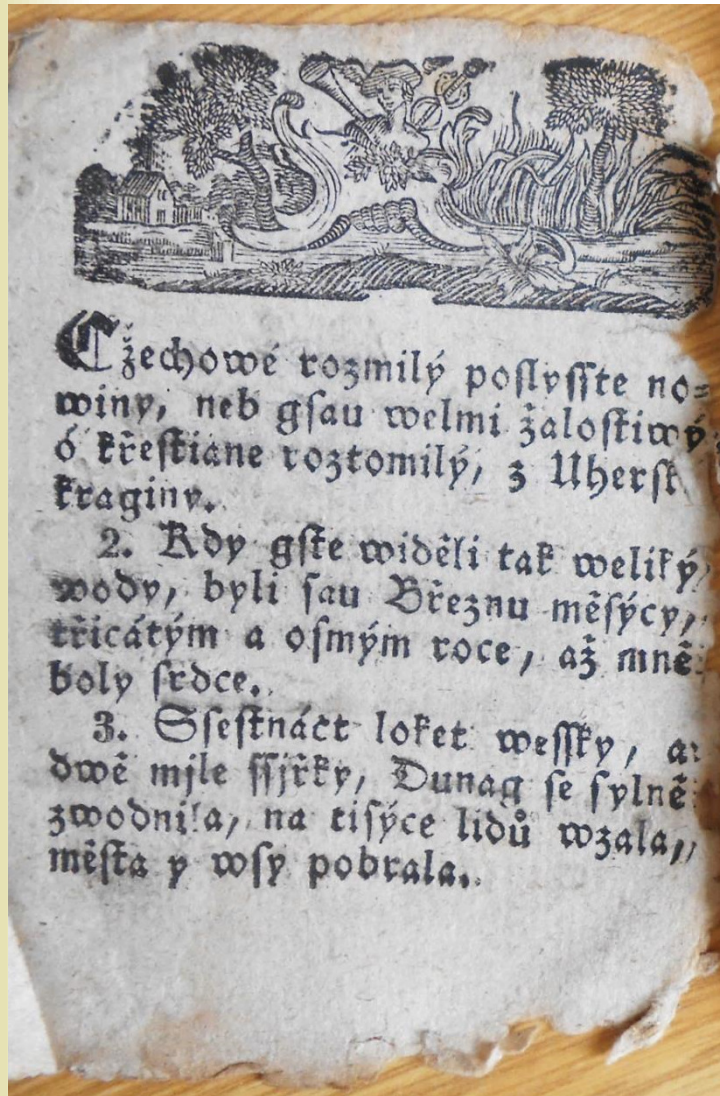 Cžechowé rozmilý poslyſſte no=
winy, neb gſau welmi žaloſtiwý,
ó křeſtiane roztomilý, z Uherſk
kraginy.
2. Kdy gſte widěli tak weliký
wody, byli ſau Březnu měſýcy,
třicátým a oſmým roce, až mně
boly ſrdce.
3. Sſeſtnáct loket weyſſky, a
dwě mjle ſſjřky, Dunag ſe ſylně
zwodnila, na tiſýce lidů wzala,
měſta y wſy pobrala.